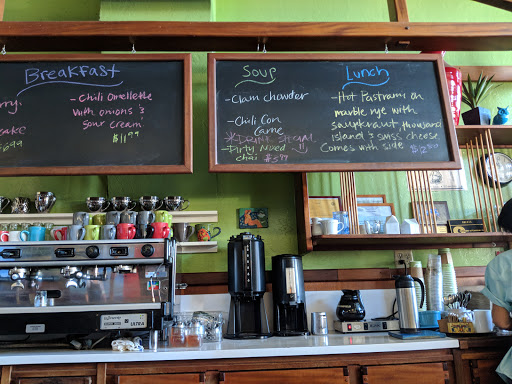 Breakfast
- Chili Omellette
with onions &
sour cream
$11.99
Soup
- Clam chowder
- Chili Con
Carne
- Dirty Mixed
chai
Lunch
- Hot Pastrami on
marble rye with
saurkraut, thousand
island & swiss cheese
Comes with side